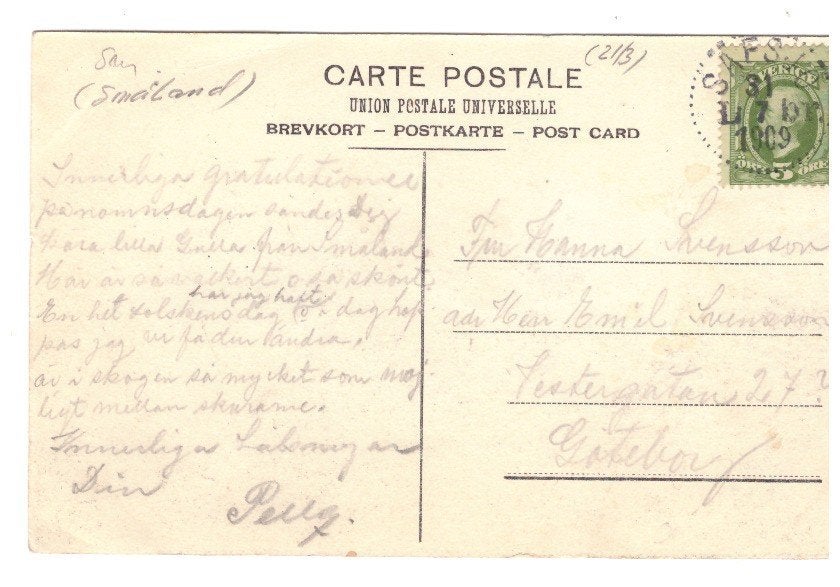 Say
(Småland)
(21/3)
CARTE POSTALE
UNION POSTALE UNIVERSELLE
BREVKORT – POSTKARTE – POST CARD
SÄFSJÖ
31
7
1909
5 ÖRE
Innerliga gratulationer
på namnsdagen sänder Dig
Kära lilla Gulla från Småland
Här är så vackert o så skönt
En het solskensdag har jag haft i dag hop
pas jag vi få den andra.
är i skogen så mycket som möj
ligt mellan skurarne.
Innerliga hälsningar
Din
Pelly.
Fru Hanna Svensson
adr Herr Emil Svensson
Vestergatan 27?
Göteborg